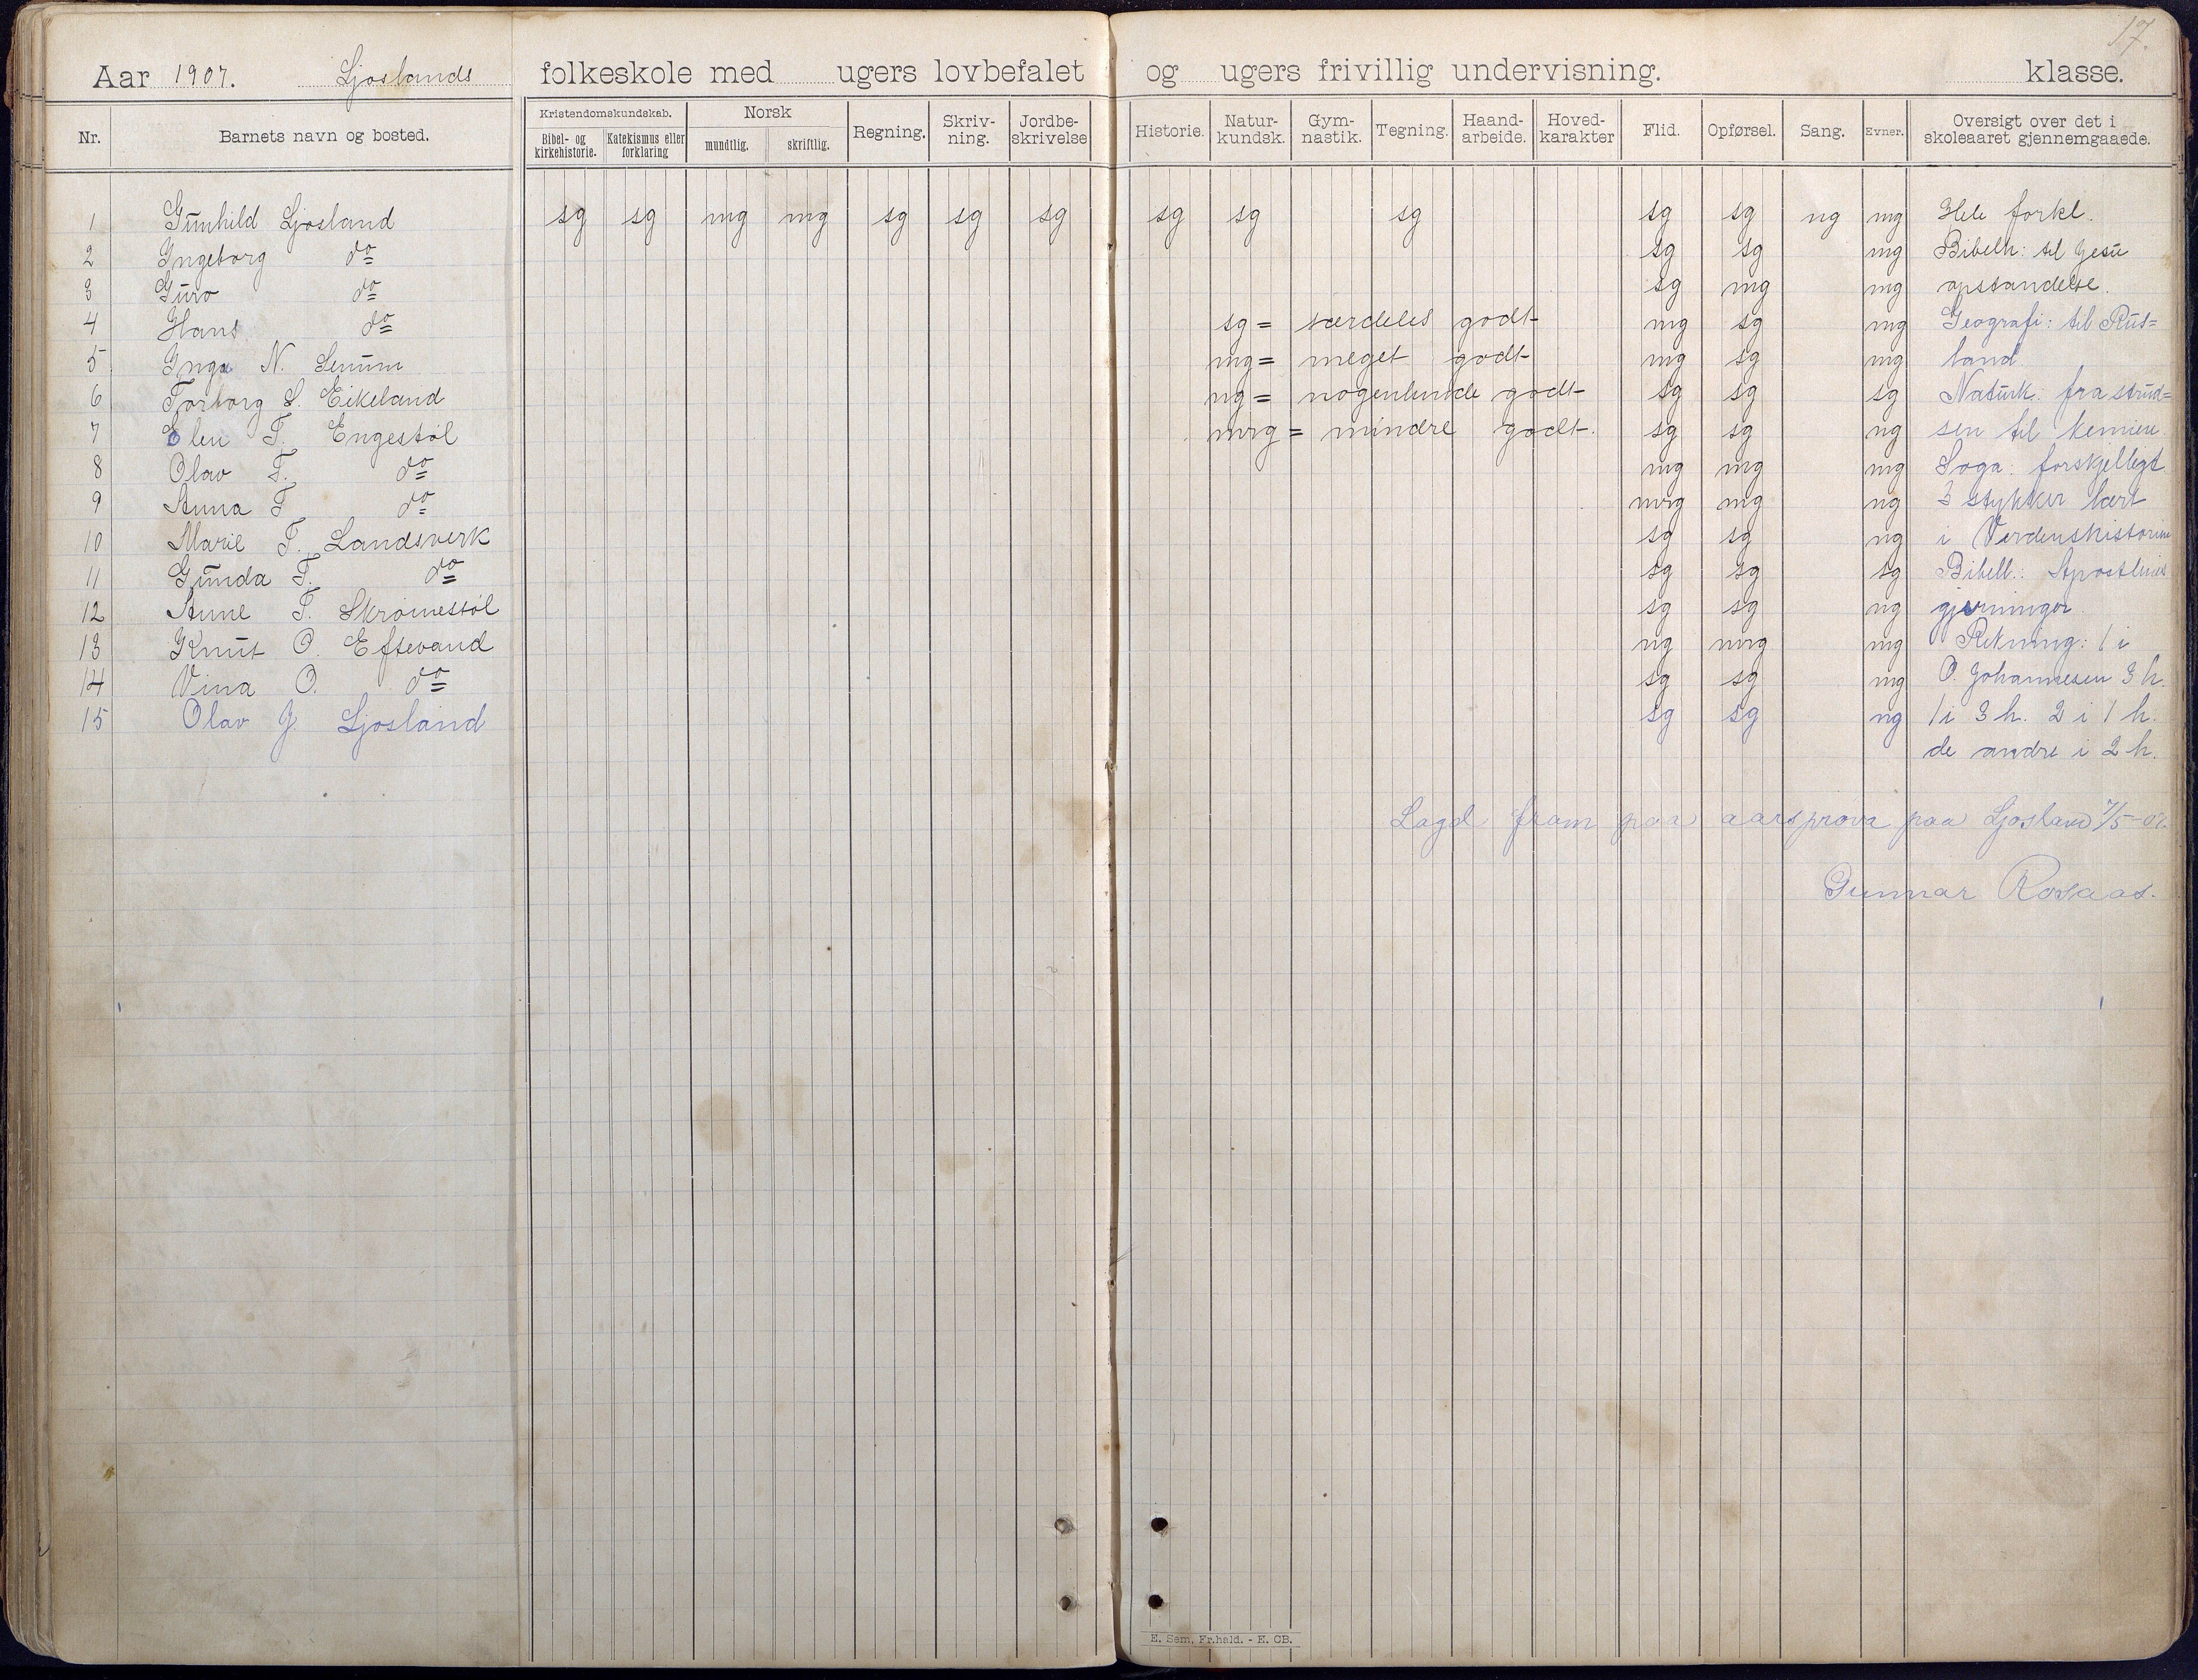 17.
Aar 1907. Ljoslands folkeskole med ugers lovbefalet og ugers frivillig undervisning. klasse.
Nr. Barnets navn og bosted. Kristendomskundskab. Bibel- og kirkehistorie. Katekismus eller forklaring Norsk mundtlig. skriftlig. Regning. Skriv-ning. Jordbe-skrivelse Historie. Natur-kundsk. Gym-nastik. Tegning. Haand-arbeide. Hoved-karakter Flid. Opførsel. Sang. Evner. Oversigt over det i skoleaaret gjennemgaaede.
1 Gunhild Ljosland sg sg mg mg sg sg sg sg sg sg sg sg ng mg Hele forkl.
2 Ingeborg do sg sg mg Bibelh: til Jesu
3 Guro do sg mg mg opstandelse.
4 Hans do sg = særdeles godt mg sg mg Geografi: til Rus=
5 Inga N. Senum mg = meget godt mg sg mg land
6 Torborg S. Eikeland ng = nogenlunde godt sg sg sg Naturk. fra strud=
7 Elen T. Engestøl mrg = mindre godt. sg sg ng sen til
8 Olav T. do mg mg mg Soga: forskjelligt
9 Anna T do mrg mg ng 3 stykker lært
10 Marie T. Landsverk sg sg ng i Verdenshistorien
11 Gunda T. do sg sg sg Bibell.: Apostlenes
12 Anne T. Skromestøl sg sg ng gjerninger.
13 Knut O. Eftevand ng mrg mg Rekning: 1 i
14 Vina O. do sg sg mg O. Johannesen 3 h.
15 Olav J. Ljosland sg sg ng 1 i 3 h. 2 i 1 h.
de andre i 2 h.
Lagd fram paa aarsprova paa Ljosland 7/5-07.
Gunnar Rosaas.
E. Sem, Fr.hald. - E. CB.